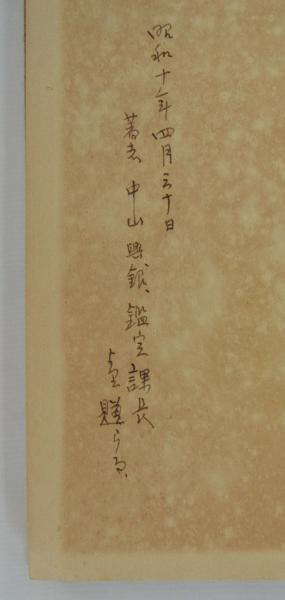 昭和十年四月三十日
著者 中山興銀、鑑定課長
より贈らる、